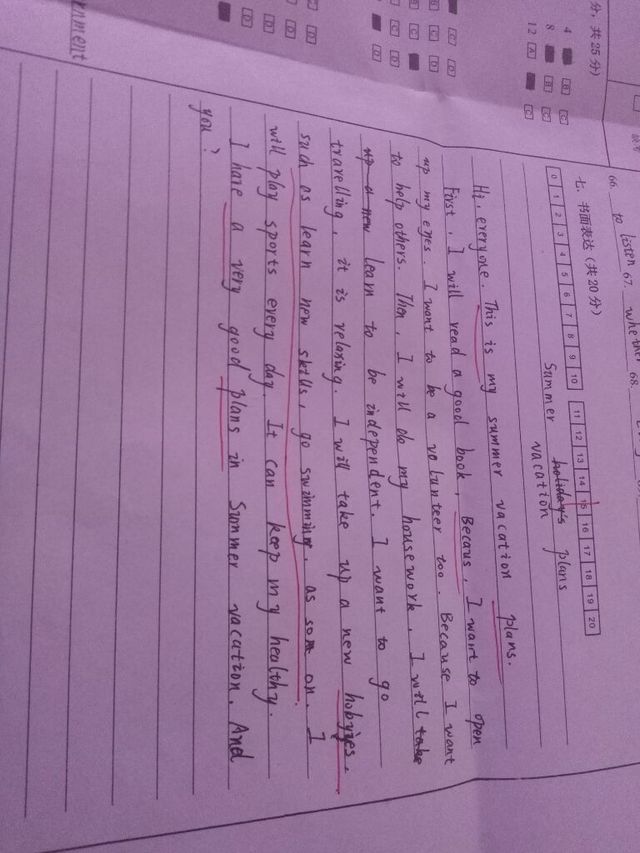 分，共25分）
4 [B] [C]
8 [B] [C]
12 [A] [C]
66. to listen 67. whether 68.
七、书面表达（共20分）
0 1 2 3 4 5 6 7 8 9 10 11 12 13 14 15 16 17 18 19 20
Summer holiday's plans
vacation
Hi, everyone. This is my summer vacation plans.
First, I will read a good book, Becaus, I want to open
up my eyes. I want to be a volunteer too. Because I want
to help others. Then, I will do my housework, I will take
up a new learn to be independent. I want to go
travelling, it is relaxing. I will take up a new hobyies,
such as learn new skills, go swimming, as som on. I
will play sports every day. It can keep my healthy.
I have a very good plans in Summer vacation. And
you?